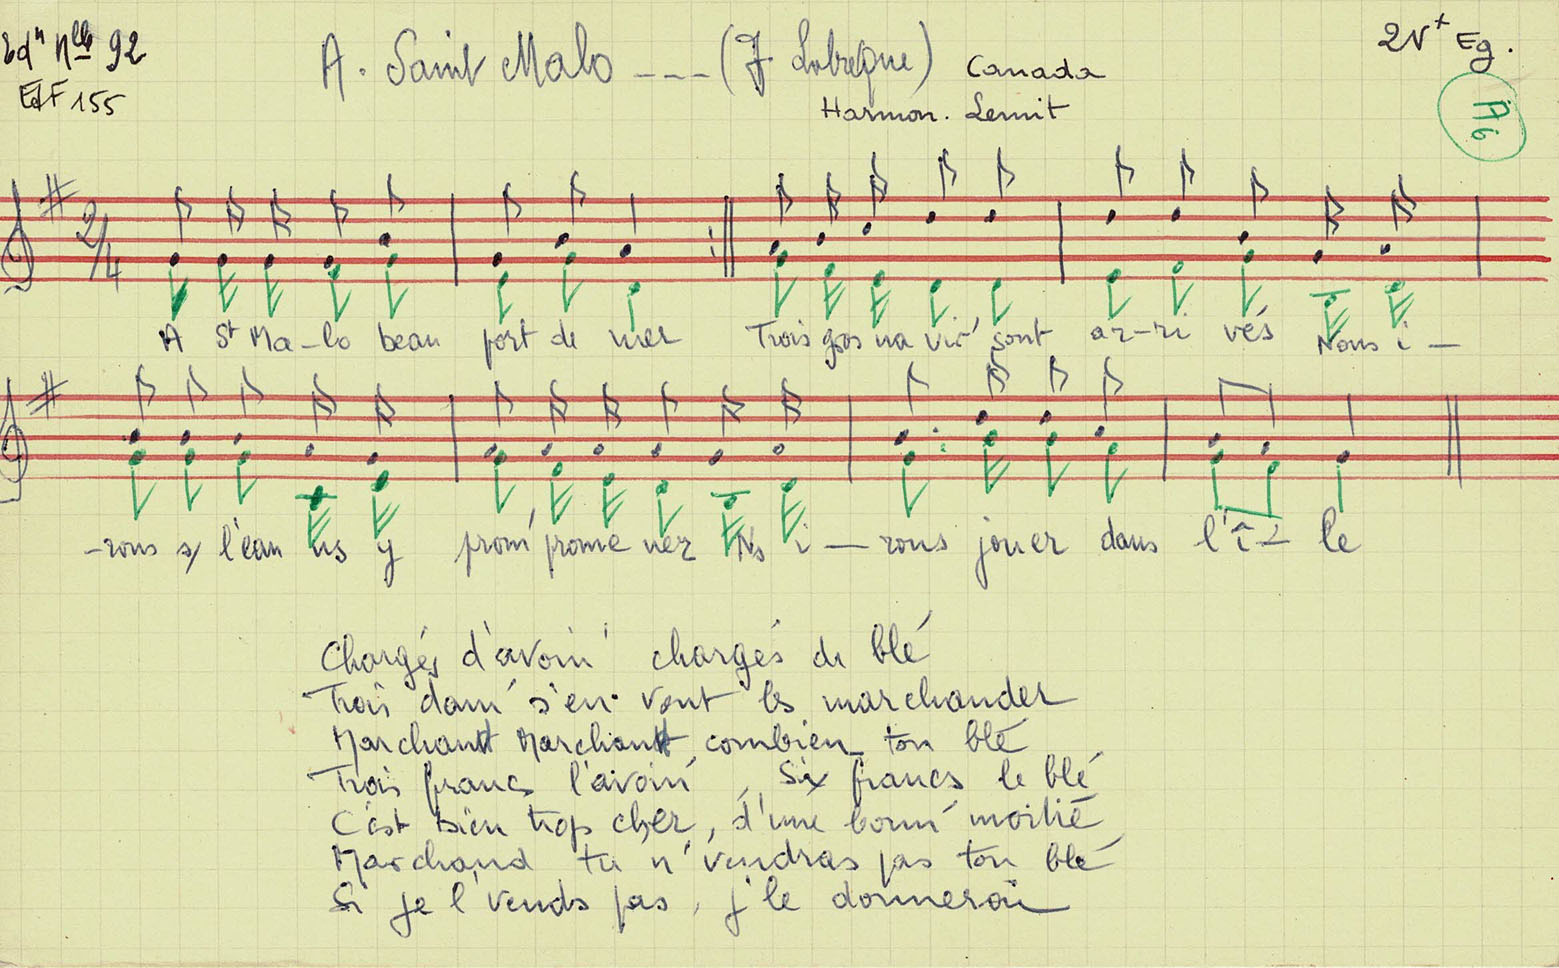 Edⁿ Nˡˡᵉ 92
EdF 155
A. Saint Malo --- (J. Labreque) Canada
Harmon. Lemit
2V⁺ Eg.
A6
2/4
A Sᵗ Ma-lo beau port de mer Trois gros na vir' sont ar-ri vés Nous i-
-rons s/ l'eau ns y prom' prome ner Ns i - rons jouer dans l'î - le
Chargés d'avoin' chargés de blé
Trois dam' s'en vont les marchander
Marchand Marchand combien ton blé
Trois francs l'avoin', Six francs le blé
C'est bien trop cher, d'une bonn' moitié
Marchand tu n'vendras pas ton blé
Si je l'vends pas, j'le donnerai